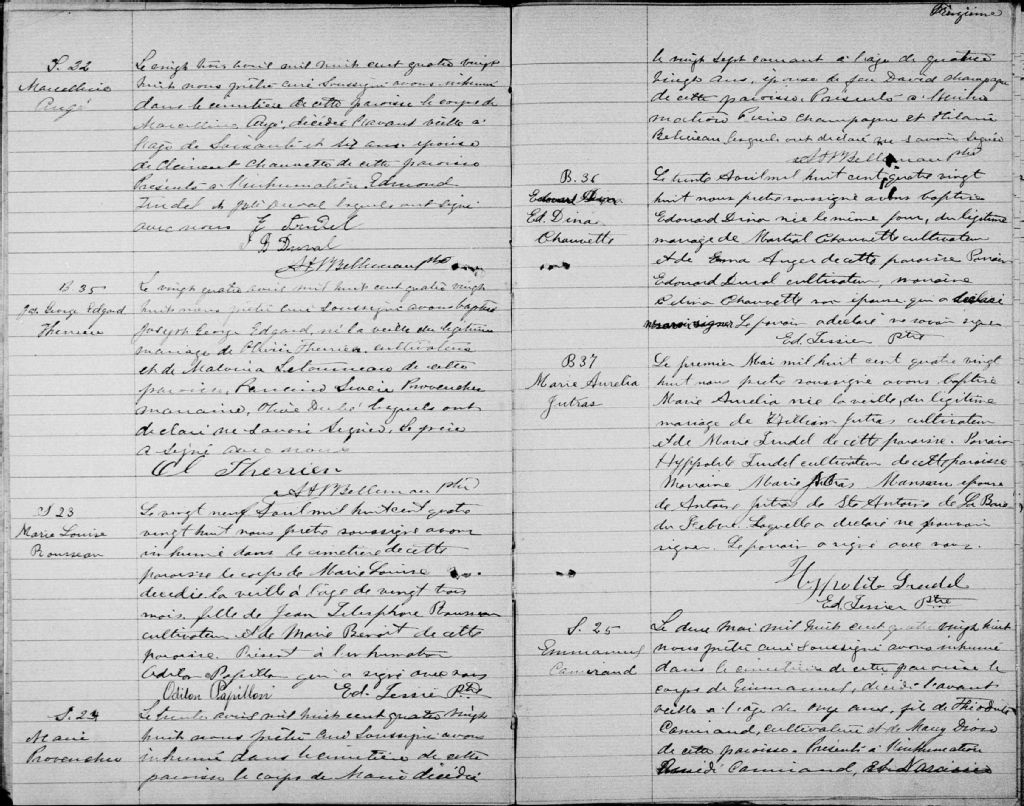 S. 22
Marcelline
Augé
Le vingt trois avril mil huit cent quatre vingt
huit nous prêtre curé Soussigné avons inhumé
dans le cimetière de cette paroisse le corps de
Marcelline Augé, décédée l'avant veille a
l'age de Soixante et dix ans, épouse
de Clément Chauvette de cette paroisse
Presents a l'inhumation Edmond
Trudel & Duval lesquels ont signé
avec nous E Trudel
J B Duval
Ptre
B. 35
Jos. George Edgard
Therrien
Le vingt quatre avril mil huit cent quatre vingt
huit nous prêtre curé Soussigné avons baptisé
Joseph George Edgard, né la veille du légitime
mariage de Olivier Therrien cultivateur
et de Malvina de cette
paroisse, Parrain Provencher
marraine, lesquels ont
declaré ne Savoir Signer, Le père
a Signé avec nous
Ol Therrien
Ptre
S 23
Marie Louise
Rousseau
Le vingt neuf d'avril mil huit cent quatre
vingt huit nous pretre soussigné avons
inhumé dans le cimetière de cette
paroisse le corps de Marie Louise
decedée la veille à l'age de vingt trois
mois, fille de Jean Telesphore Rousseau
cultivateur et de Marie Benoit de cette
paroisse. Présent à l'inhumation
Odilon Papillon qui a signé avec nous
Odilon Papillon Ed. Tessier Ptre
S. 24
Marie
Provencher
Le trente avril mil huit cent quatre vingt
huit nous prêtre curé Soussigné avons
inhumé dans le cimetière de cette
paroisse le corps de Marie décédée
le vingt sept courant a l'age de quatre
vingts ans, épouse de feu David champagne
de cette paroisse. Présents a l'inhu
mation Champagne et Hilaire
lesquels ont declaré ne savoir signer
Ptre
B. 36
Edouard Dina
Ed. Dina
Chauvette
Le trente Avril mil huit cent quatre vingt
huit nous pretre soussigné avons baptisé
Edouard Dina née le même jour, du legitime
mariage de Martial Chauvette cultivateur
et de Emma Auger de cette paroisse Parrain
Edouard Duval cultivateur, marraine
Chauvette son épouse qui a declaré
ne savoir signer Le parrain a declaré ne savoir signer
Ed. Tessier Ptre
B 37
Marie Aurelia
Jutras
Le premier Mai mil huit cent quatre vingt
huit nous pretre soussigné avons baptisé
Marie Aurelia née la veille, du legitime
mariage de William Jutras cultivateur
et de Marie Trudel de cette paroisse. Parrain
Hyppolite Trudel cultivateur de cette paroisse
Marraine Marie Manseau épouse
de Antoine Jutras de St Antoine de La Baie
du Febvre. Laquelle a declaré ne pouvoir
signer. Le parrain a signé avec nous.
Hyppolite Trudel
Ed. Tessier Ptre
S. 25
Emmanuel
Camirand
Le deux Mai mil huit cent quatre vingt huit
nous prêtre curé Soussigné avons inhumé
dans le cimetière de cette paroisse le
corps de Emmanuel, décédé l'avant
veille a l'age de onze ans, fils de Théodule
Camirand, cultivateur et de Mary
de cette paroisse. Présents a l'inhumation
Camirand,